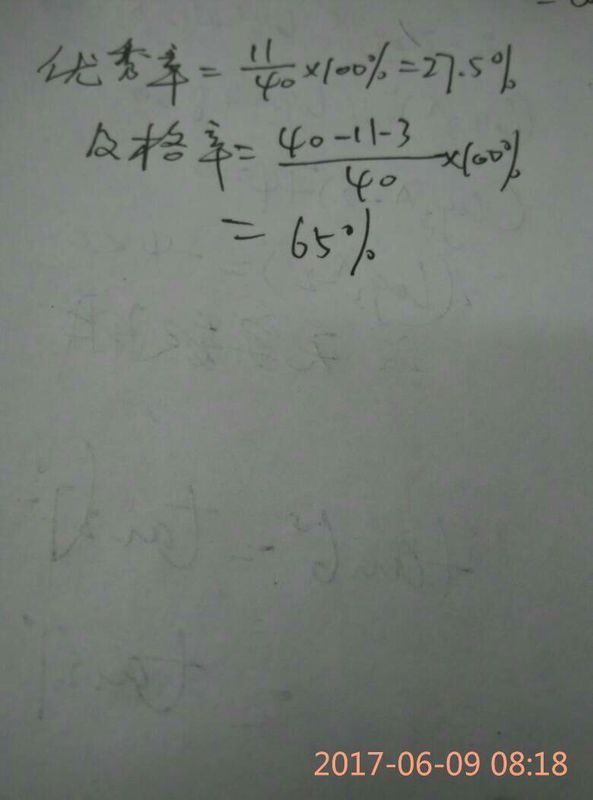 优秀率 = 11/40 ×100% = 27.5%
及格率 = 40-11-3/40 ×100%
= 65%
2017-06-09 08:18